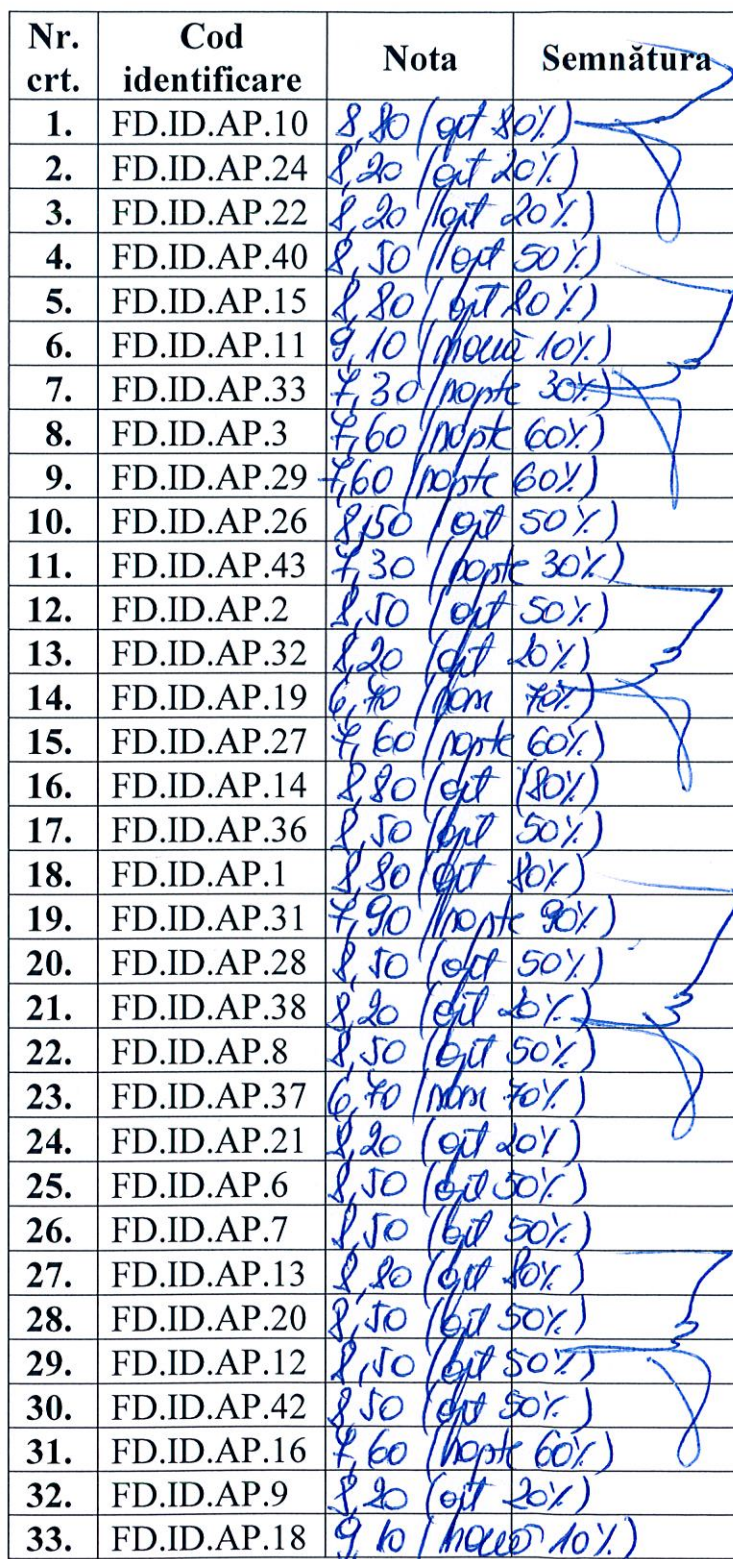 Nr. crt. Cod identificare Nota Semnătura
1. FD.ID.AP.10 8,80 (opt 80%)
2. FD.ID.AP.24 8,20 (opt 20%)
3. FD.ID.AP.22 8,20 (opt 20%)
4. FD.ID.AP.40 8,50 (opt 50%)
5. FD.ID.AP.15 8,80 (opt 80%)
6. FD.ID.AP.11 9,10 (nouă 10%)
7. FD.ID.AP.33 7,30 (șapte 30%)
8. FD.ID.AP.3 7,60 (șapte 60%)
9. FD.ID.AP.29 7,60 (șapte 60%)
10. FD.ID.AP.26 8,50 (opt 50%)
11. FD.ID.AP.43 7,30 (șapte 30%)
12. FD.ID.AP.2 8,50 (opt 50%)
13. FD.ID.AP.32 8,20 (opt 20%)
14. FD.ID.AP.19 6,70 (șase 70%)
15. FD.ID.AP.27 7,60 (șapte 60%)
16. FD.ID.AP.14 8,80 (opt (80%)
17. FD.ID.AP.36 8,50 (opt 50%)
18. FD.ID.AP.1 8,80 (opt 80%)
19. FD.ID.AP.31 7,90 (șapte 90%)
20. FD.ID.AP.28 8,50 (opt 50%)
21. FD.ID.AP.38 8,20 (opt 20%)
22. FD.ID.AP.8 8,50 (opt 50%)
23. FD.ID.AP.37 6,70 (șase 70%)
24. FD.ID.AP.21 8,20 (opt 20%)
25. FD.ID.AP.6 8,50 (opt 50%)
26. FD.ID.AP.7 8,50 (opt 50%)
27. FD.ID.AP.13 8,80 (opt 80%)
28. FD.ID.AP.20 8,50 (opt 50%)
29. FD.ID.AP.12 8,50 (opt 50%)
30. FD.ID.AP.42 8,50 (opt 50%)
31. FD.ID.AP.16 7,60 (șapte 60%)
32. FD.ID.AP.9 8,20 (opt 20%)
33. FD.ID.AP.18 9,10 (nouă 10%)